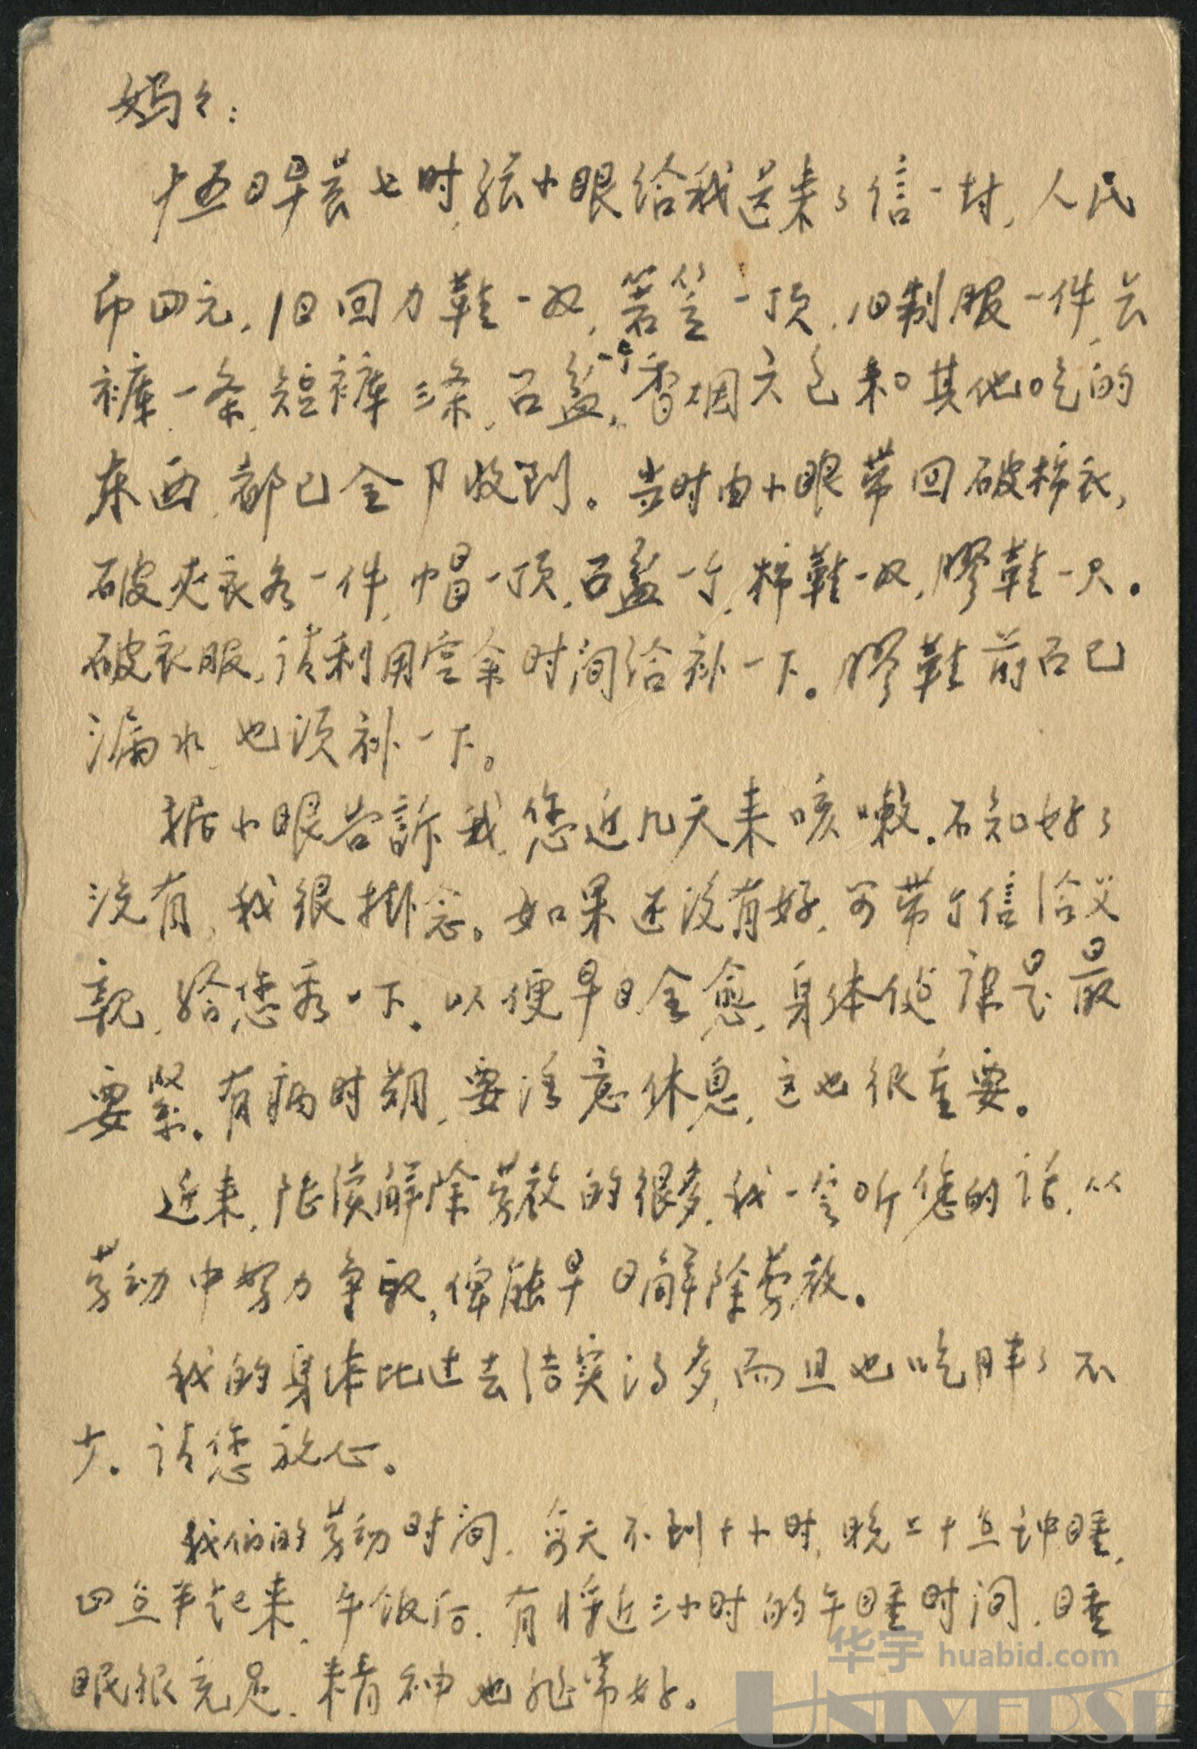 妈々：
十五日早晨七时，张小眼给我送来了信一封，人民
币四元，旧回力鞋一双，箬笠一顶，旧制服一件，长
裤一条，短裤三条，面盆一个，香烟六包和其他吃的
东西，都已全卩收到。当时由小眼带回破棉衣，
破夹衣各一件，帽一顶，面盆一个，棉鞋一双，膠鞋一只。
破衣服，请利用空余时间给补一下。膠鞋前面已
漏水，也须补一下。
据小眼告訴我，您近几天来咳嗽。不知好了
没有，我很掛念。如果还没有好，可带个信给父
親，给您看一下。以便早日全愈，身体健康是最
要紧。有病时期，要注意休息，这也很重要。
近来，陆续解除劳教的很多，我一定听您的话，从
劳动中努力争取，俾能早日解除劳教。
我的身体比过去结实得多，而且也吃胖了不
少。请您放心。
我们的劳动时间，每天不到十小时，晚上十点钟睡，
四点半起来，午饭后，有将近三小时的午睡时间，睡
眠很充足，精神也非常好。
华宇 huabid.com
UNIVERSE